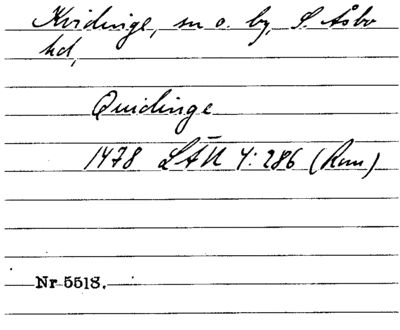 Kvidinge, sn o. by, S. Åsbo
hd,
Quidinge
1478 LÄU 4:286 (Run)
Nr 5513.